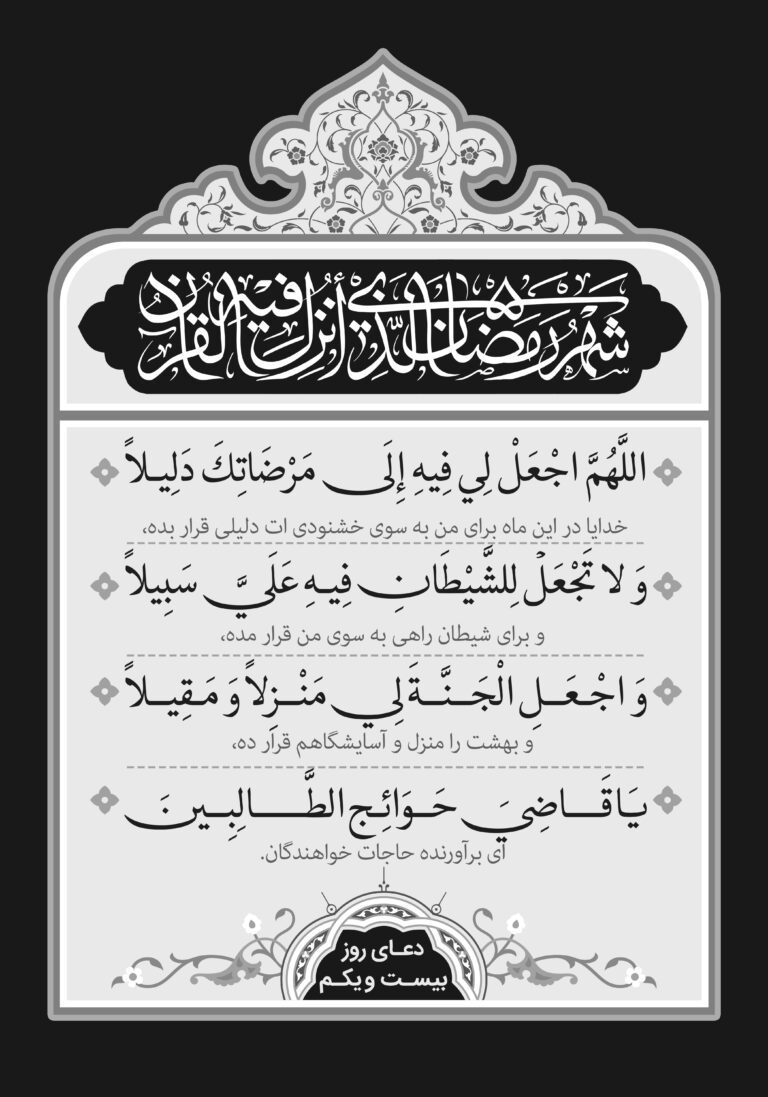 شَهْرُ رَمَضَانَ الَّذِي أُنْزِلَ فِيهِ الْقُرْآنُ
اللَّهُمَّ اجْعَلْ لِي فِيهِ إِلَى مَرْضَاتِكَ دَلِيلاً
خدایا در این ماه برای من به سوی خشنودی ات دلیلی قرار بده،
وَ لا تَجْعَلْ لِلشَّيْطَانِ فِيهِ عَلَيَّ سَبِيلاً
و برای شیطان راهی به سوی من قرار مده،
وَ اجْعَلِ الْجَنَّةَ لِي مَنْزِلاً وَ مَقِيلاً
و بهشت را منزل و آسایشگاهم قرار ده،
يَا قَاضِيَ حَوَائِجِ الطَّالِبِينَ
ای برآورنده حاجات خواهندگان.
دعای روز
بیست و یکم